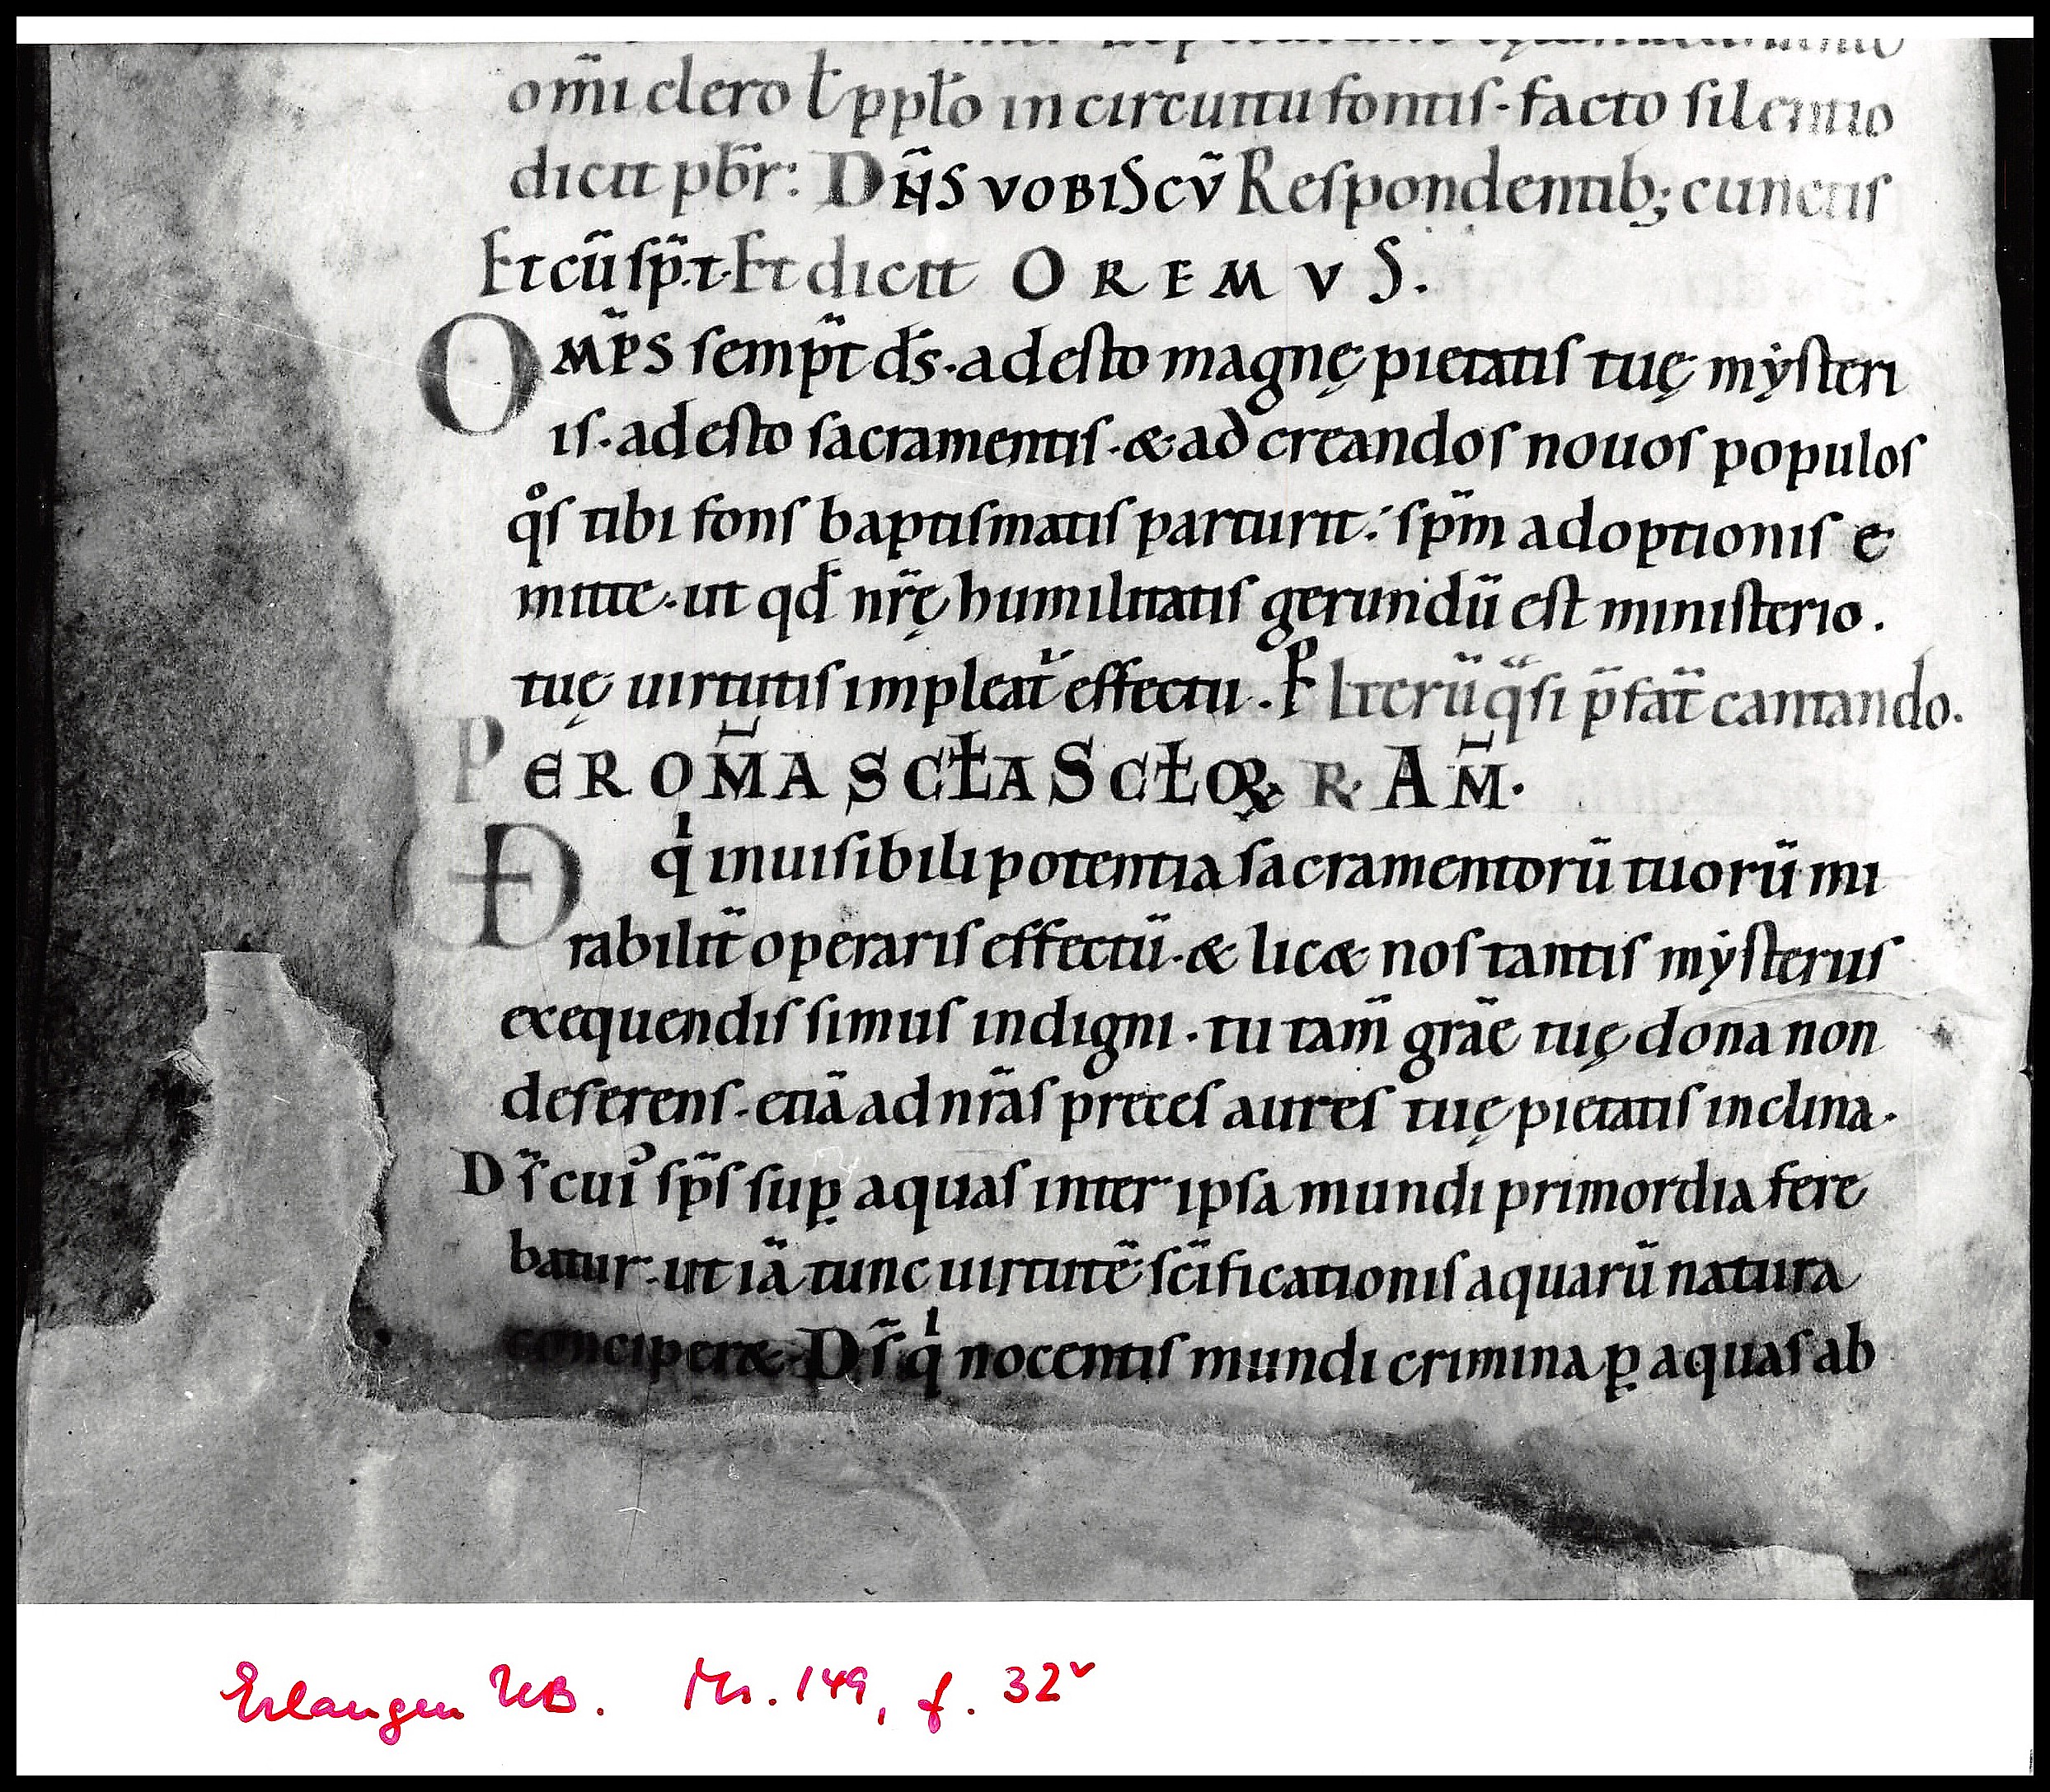 om̅i clero ł pplo̅ in circuitu fontis· facto silentio
dicit pbr̅: DN̅S VOBISCV̅ Respondentib; cunctis
Et cu̅ sp̅·t· Et dicit OREMVS.
OMP̅S semp̅t ds̅· adesto magnę pietatis tuę mẏsteri
is· adesto sacramentis· & ad creandos nouos populos
qͦs tibi fons baptismatis parturit: sp̅m adoptionis e
mitte· ut qd̅ nr̅ę humilitatis gerundu̅ est ministerio.
tuę uirtutis impleat᷑ effectu. P̲ Iteru̅ qᷓsi p̅fat̅ cantando.
PER OM̅A SCŁA SCŁOꝜ R· AM̅·
qͥ inuisibili potentia sacramentoru̅ tuoru̅ mi
rabilit̅ operaris effectu̅· & lic& nos tantis mẏsteriis
exequendis simus indigni· tu tam̅ gra̅e tuę dona non
deserens· etia̅ ad nr̅as preces aures tuę pietatis inclina·
Ds̅ cuiꝰ sp̅s suꝑ aquas inter ipsa mundi primordia fere
batur· ut ia̅ tunc uirtute̅ sc̅ificationis aquaru̅ natura
conciper&· Ds̅ qͥ nocentis mundi crimina ꝑ aquas ab
Erlangen UB. Ms. 149, f. 32ᵛ